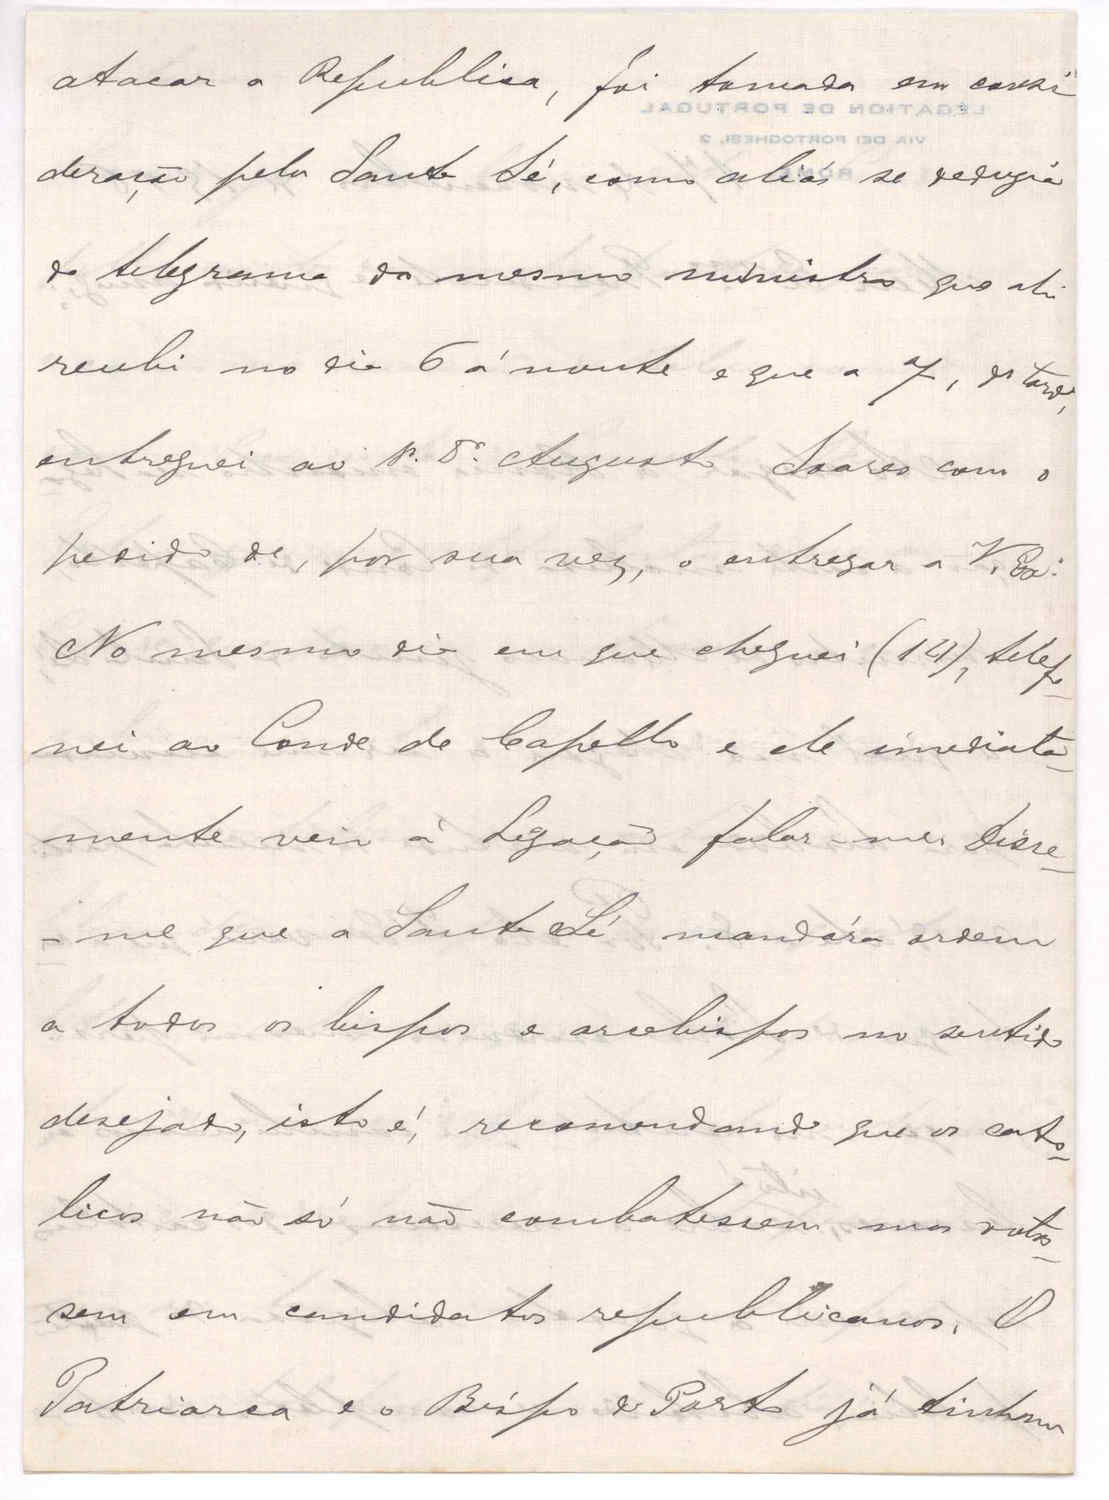 atacar a Republica, foi tomada em consi
deração pela Santa Sé, como aliás se deduzia
do telegrama do mesmo ministro que ahi
recebi no dia 6 á noute e que a 7, de tarde,
entreguei ao sr. Dr. Augusto Soares com o
pedido de, por sua vez, o entregar a V. Exª.
No mesmo dia em que cheguei (14), telefo-
nei ao Conde de Capello e ele imediata-
mente veiu á Legação falar-me. Disse-
-me que a Santa Sé mandára ordem
a todos os bispos e arcebispos no sentido
desejado, isto é, recomendando que os cato-
licos não só não combatessem mas votas-
sem em candidatos republicanos. O
Patriarca e o Bispo do Porto já tinham
LÉGATION DE PORTUGAL
VIA DEI PORTOGHESI, 2
ROME